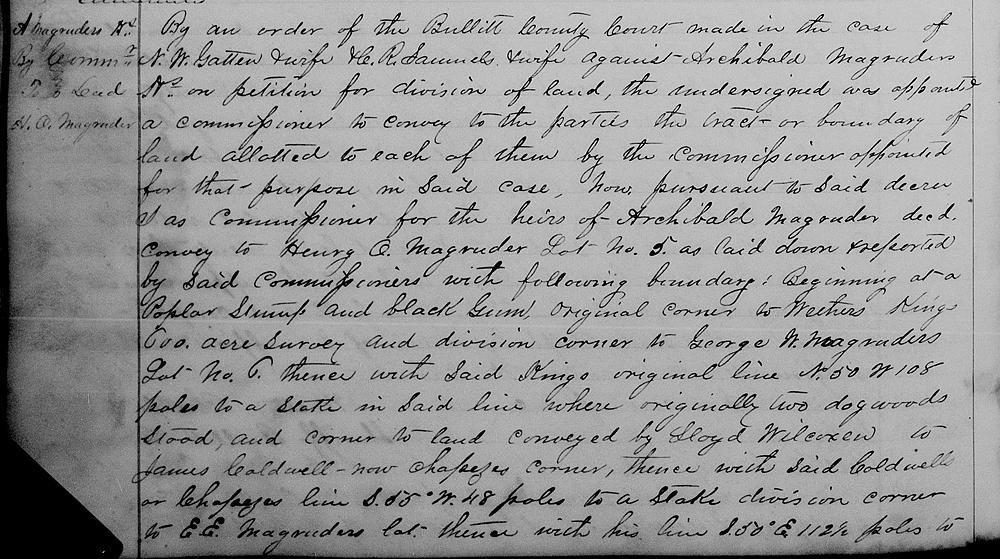 A Magruders Hs.
By Commr
To } Lead
H. O. Magruder
By an order of the Bullitt County Court made in the case of
N. W. Gatten & wife & C. R. Samuels & wife against Archibald Magruders
Hs. on petition for division of land, the undersigned was appointed
a commissioner to convey to the parties the tract or boundary of
land allotted to each of them by the Commissioner appointed
for that purpose in said case, now, pursuant to said decree
I as Commissioner for the heirs of Archibald Magruder decd.
Convey to Henry O. Magruder Lot No. 5. as laid down & reported
by said Commissioners with following boundary: Beginning at a
Poplar Stump and black Gum, original corner to Weathers Kings
600. acre survey and division corner to George W. Magruders
Lot No. 6. thence with said Kings original line N. 50 W 108
poles to a stake in said line where originally two dogwoods
stood, and corner to land conveyed by Lloyd Wilcoxen to
James Coldwell - now Chapezes corner, thence with said Coldwells
or Chapezes line S. 55° W. 48 poles to a stake division corner
to E. E. Magruders lot. thence with his line S. 50° E 112½ poles to